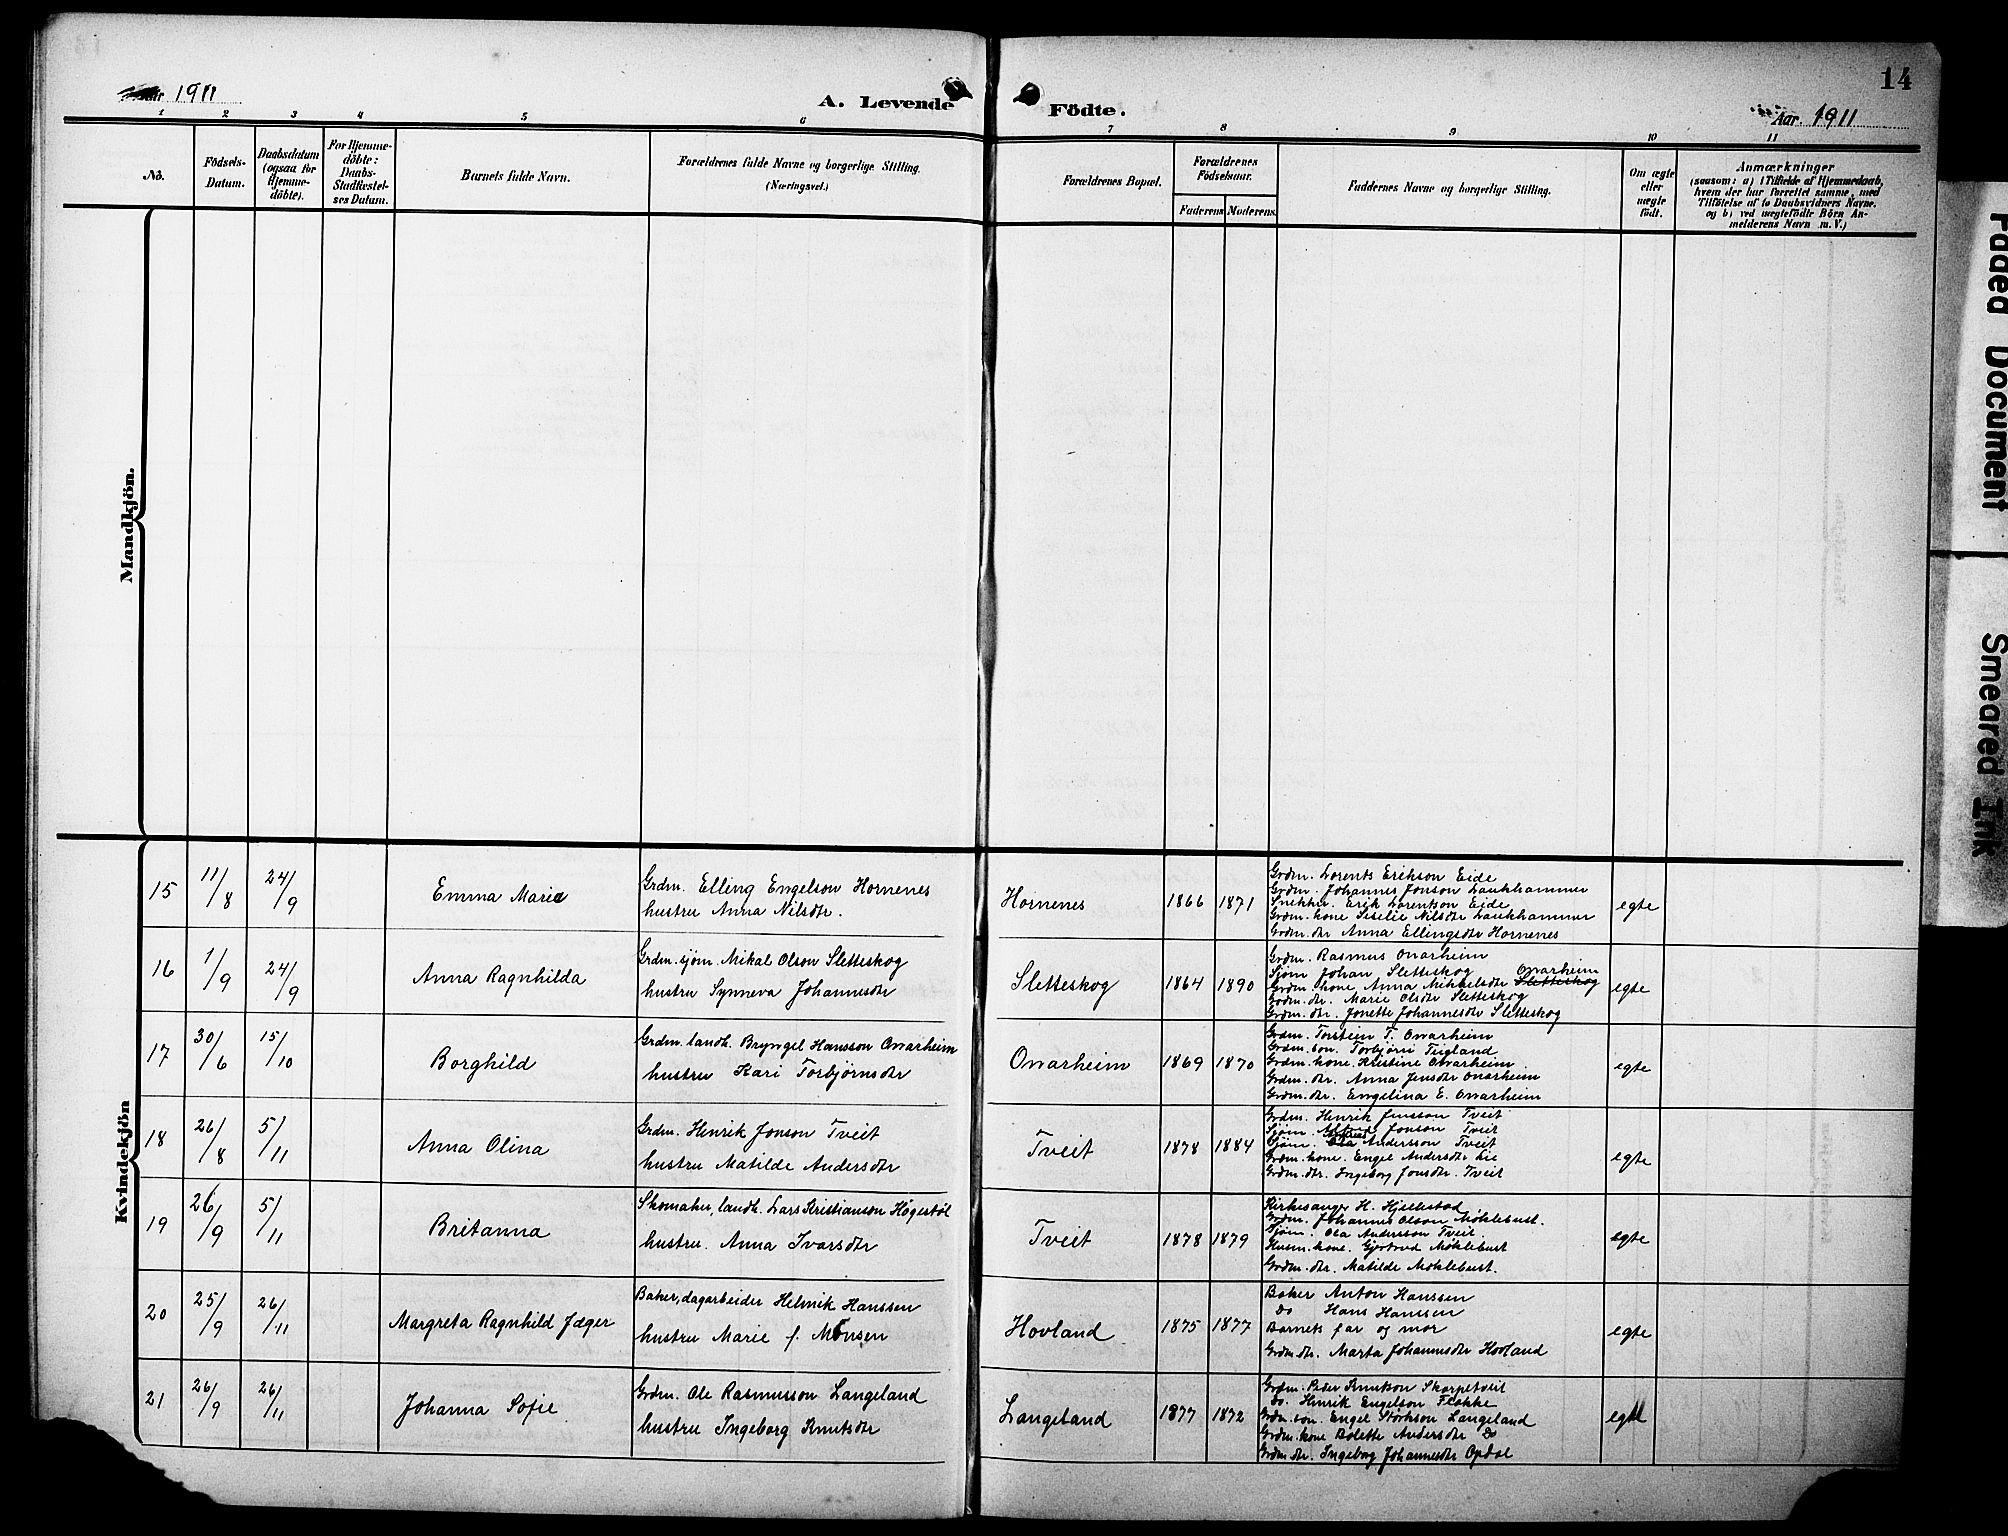 14
Aar 1911
A. Levende Födte.
Aar. 1911
1 2 3 4 5 6 7 8 9 10 11
No.
Födsels-
Datum.
Daabsdatum
(ogsaa for
Hjemme-
döbte).
For Hjemme-
döbte:
Daabs-
Stadfæstel-
ses Datum.
Barnets fulde Navn.
Forældrenes fulde Navne og borgerlige Stilling.
(Næringsvei.)
Forældrenes Bopæl.
Forældrenes
Födselsaar.
Faderens Moderens
Faddernes Navne og borgerlige Stilling.
Om ægte
eller
uægte
födt.
Anmærkninger
(saasom: a) i Tilfælde af Hjemmedaab,
hvem der har forrettet samme, med
Tilföielse af to Daabsvidners Navne.
og b) ved uægtefödte Börn An-
melderens Navn m. V.)
Mandkjön.
Kvindekjön
15 11/8 24/9 Emma Marie
Grdm. Elling Engelson Hornenes
hustru Anna Nilsdtr.
Hornenes 1866 1871
Grdm. Lorents Erikson Eide
Grdm. Johannes Jonson Laukhammer
Snekker. Erik Lorentson Eide
Grdm. kone Siselie Nilsdtr Laukhammer
Grdm. dtr Anna Ellingsdtr Hornenes
egte
16 1/9 24/9 Anna Ragnhilda
Grdm. sjøm. Mikal Olson Sletteskog
hustru Synneva Johannesdtr
Sletteskog 1864 1890
Grdm. Rasmus Onarheim
Sjøm Johan Sletteskog
Grdm. kone Anna Mikkelsdtr Sletteskog Onarheim
Grdm. dtr. Marie Olsdtr Sletteskog
Grdm. dtr. Jonette Johannesdtr Sletteskog
egte
17 30/6 15/10 Borghild
Grdm. landh. Bryngel Hansson Onarheim
hustru Kari Torbjørnsdtr
Onarheim 1869 1870
Grdm. Torstein T. Onarheim
Grdm. søn. Torbjørn Tegland
Grdm. kone Kristine Onarheim
Grdm. dtr. Anna Jensdtr Onarheim
Grdm. dtr. Engelina E. Onarheim
egte
18 26/8 5/11 Anna Olina
Grdm. Henrik Jonson Tveit
hustru Matilde Andersdtr
Tveit 1878 1884
Grdm. Henrik Jensson Tveit
Sjøm. Jonson Tveit
Sjøm. Andersson Tveit
Grdm. kone. Engel Andersdtr Lie
Grdm. dtr. Ingeborg Jonsdtr. Tveit
egte
19 26/9 5/11 Britanna
Skomaker, landh. Lars Kristianson Høgestøl
hustru. Anna Ivarsdtr
Tveit 1878 1879
Kirkesanger H. Hjellestad
Grdm. Johannes Olson Møklebust.
Sjøm. Ola Andersson Tveit.
Husm. kone. Gjertrud Møklebust
Grdm. dtr. Matilde Møklebust.
egte
20 25/9 26/11 Margreta Ragnhild Jæger
Baker, dagarbeider Helmik Hanssen
hustru Marie f. Monsen
Hovland 1875 1877
Baker Anton Hanssen
Do Hans Hanssen
Barnets far og mor
Grdm. dtr. Marta Johannesdtr Hovland
egte
21 26/9 26/11 Johanna Sofie
Grdm. Ole Rasmusson Langeland
hustru Ingeborg Knutsdtr
Langeland 1877 1872
Grdm. Peder Knutson Skarpetveit
Do. Henrik Engelson Flokke
Grdm. søn. Engel Størkson Langeland
Grdm. kone Bolette Andersdtr Do
Grdm. dtr. Ingeborg Johannesdtr Opdal
egte
Faded Document
Smeared Ink